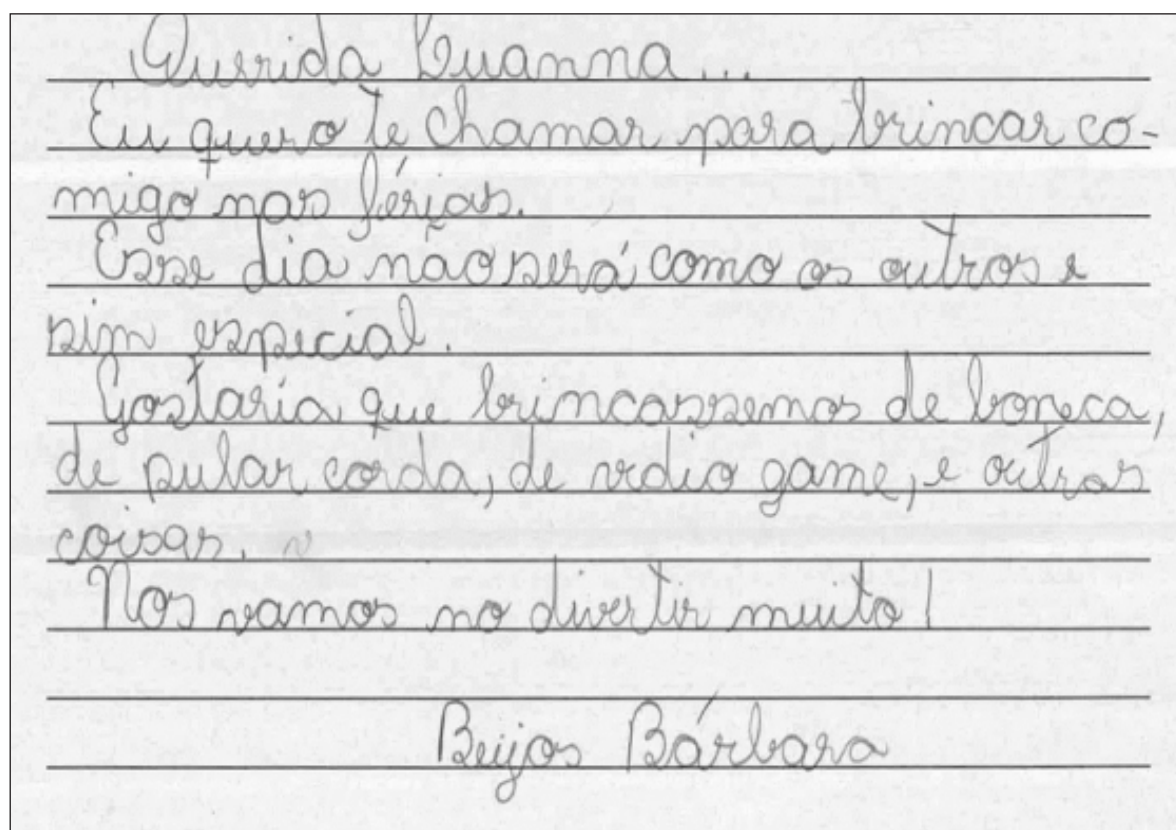 Querida Luanna...
Eu quero te chamar para brincar co-
migo nas férias.
Esse dia não será como os outros e
sim especial.
Gostaria que brincassemos de boneca,
de pular corda, de vidio game, e outras
coisas.
Nos vamos no divertir muito!
Beijos Bárbara